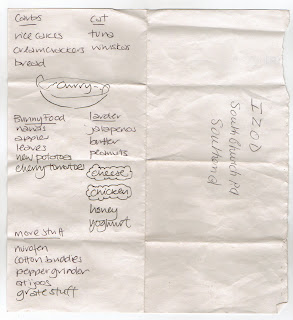 Carbs
rice cakes
cream crackers
bread
cat
tuna
whiskas
curry
Bunny Food
nanas
apples
leaves
new potatoes
cherry tomatoes
larder
jalapenos
butter
peanuts
cheese
chicken
honey
yoghurt
more stuff
nurofen
cotton buddies
pepper grinder
grate stuff
IZOD
South Church Rd
Southend